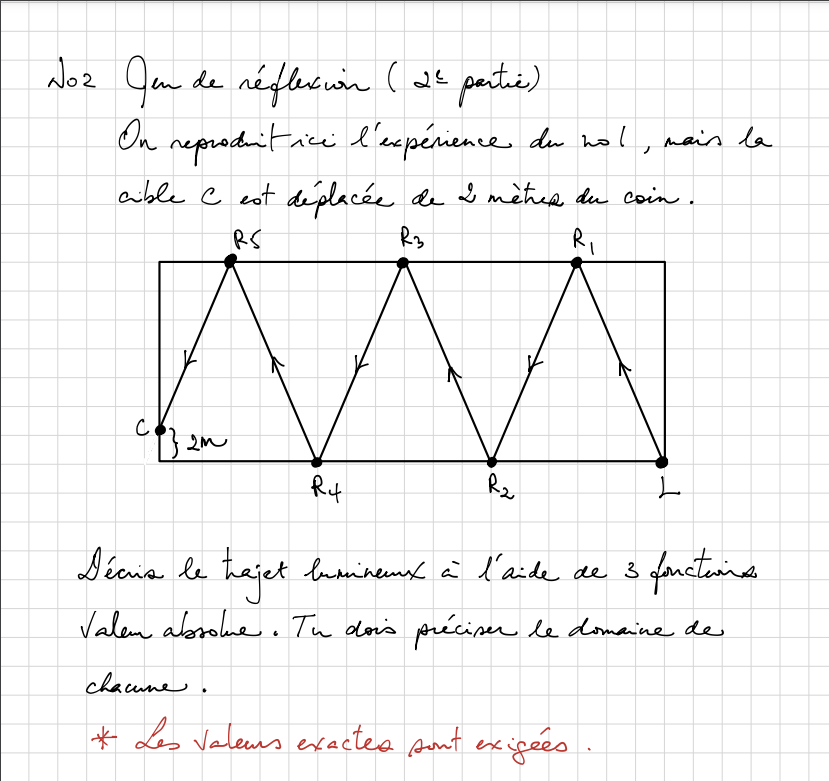 No2 Jeu de réflexion (2e partie)
On reproduit ici l'expérience du no1, mais la
cible C est déplacée de 2 mètres du coin.
R5 R3 R1
C } 2m
R4 R2 L
Décris le trajet lumineux à l'aide de 3 fonctions
valeur absolue. Tu dois préciser le domaine de
chacune.
* Les valeurs exactes sont exigées.